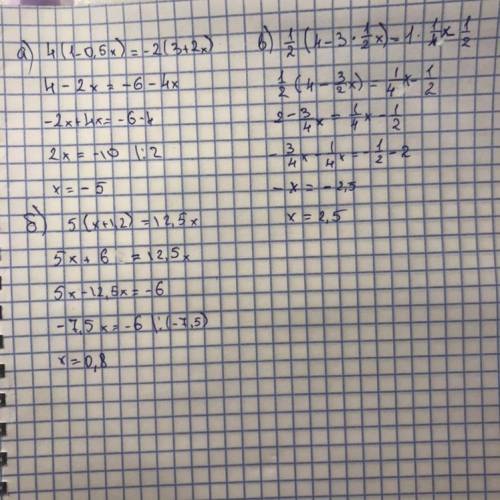 а) 4(1-0,5x)=-2(3+2x)
4-2x=-6-4x
-2x+4x=-6-4
2x=-10 |:2
x=-5
б) 5(x+1,2)=12,5x
5x+6=12,5x
5x-12,5x=-6
-7,5x=-6 |:(-7,5)
x=0,8
в) 1/2(4-3·1/2x)=1·1/4x-1/2
1/2(4-3/2x)=1/4x-1/2
2-3/4x=1/4x-1/2
-3/4x-1/4x=-1/2-2
-x=-2,5
x=2,5